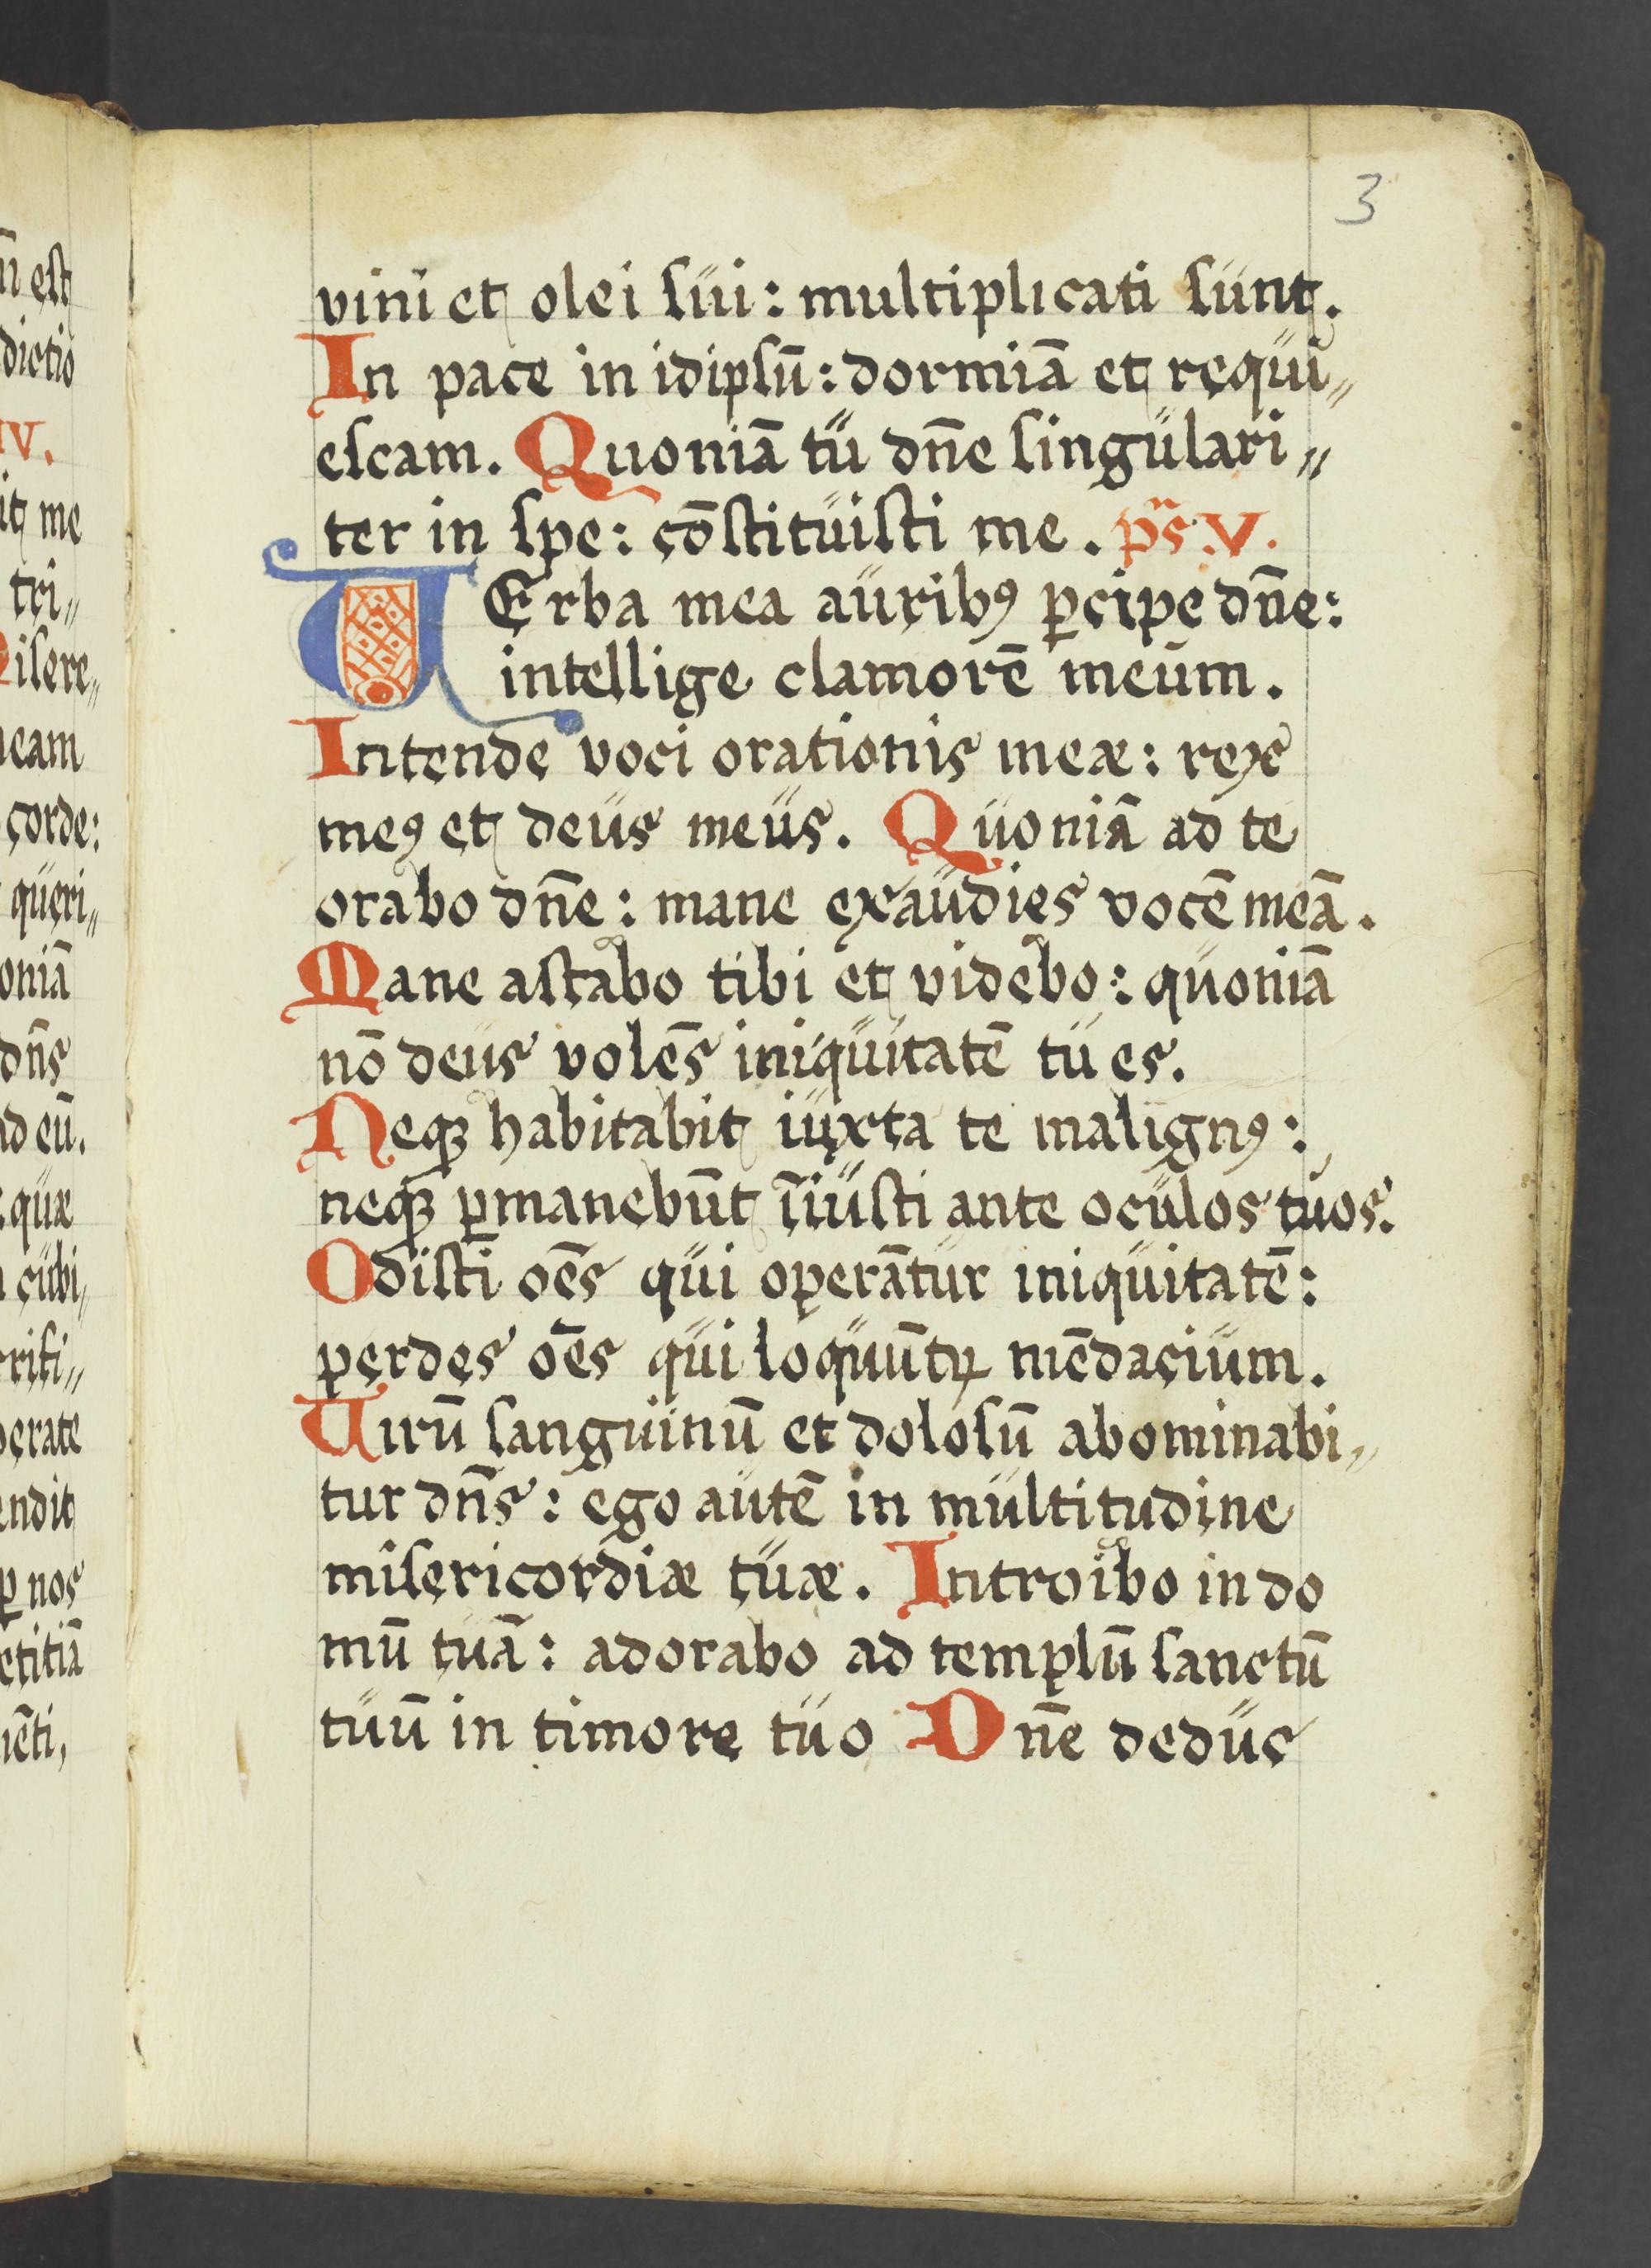 3
vini et olei sui: multiplicati sunt.
In pace in idipsū: dormiā et requi„
escam. Quoniā tu dn̄e singulari„
ter in spe: cōstituisti me. ps̄. V.
VErba mea auribꝰ ꝑcipe dn̄e:
intellige clamorē meum.
Intende voci orationis meæ: rex
meꝰ et deus meus. Quoniā ad te
orabo dn̄e: mane exaudies vocē meā.
Mane astabo tibi et videbo: quoniā
nō deus volēs iniquitatē tu es.
Neqꝫ habitabit iuxta te malignꝰ:
neqꝫ ꝑmanebūt īiusti ante oculos tuos.
Odisti oēs qui operātur iniquitatē:
perdes oēs qui loquūtꝛ mēdacium.
Virū sanguinū et dolosū abominabi„
tur dn̄s: ego autē in multitudine
misericordiæ tuæ. Introibo in do
mū tuā: adorabo ad templū sanctū
tuū in timore tuo Dn̄e deduc
est
dictio
IV.
it me
tri„
isere„
eam
corde:
queri„
oniā
dn̄s
ad eū.
quæ
cubi„
rifi„
erate
endit
ꝑ nos
etitiā